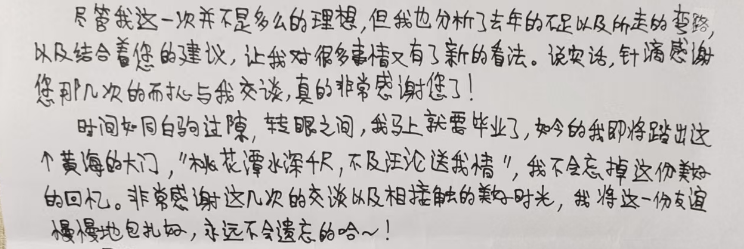 尽管我这一次并不是多么的理想，但我也分析了去年的不足以及所走的弯路，
以及结合着您的建议，让我对很多事情又有了新的看法。说实话，针滴感谢
您那几次的耐心与我交谈，真的非常感谢您了！
时间如同白驹过隙，转眼之间，我马上就要毕业了，如今的我即将踏出这
个黄海的大门，“桃花潭水深千尺，不及汪沦送我情”，我不会忘掉这份美好
的回忆。非常感谢这几次的交谈以及相接触的美好时光，我将这一份友谊
慢慢地包扎好，永远不会遗忘的哈~！